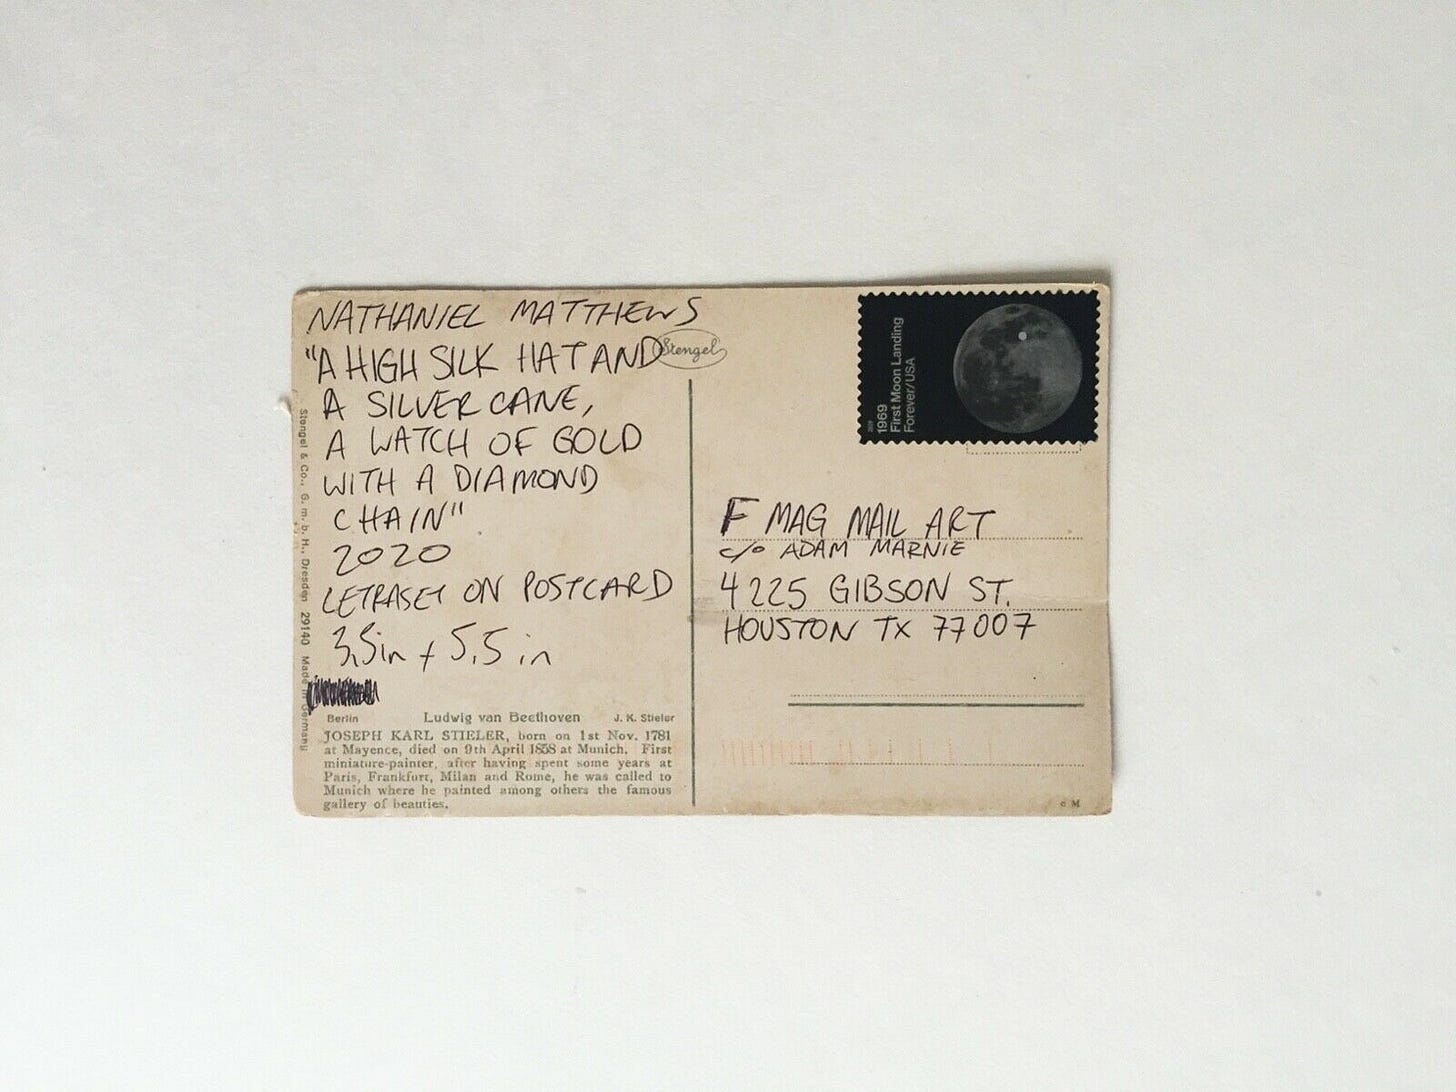 NATHANIEL MATTHEWS
"A HIGH SILK HAT AND
A SILVER CANE,
A WATCH OF GOLD
WITH A DIAMOND
CHAIN"
2020
LETRASET ON POSTCARD
3.5in + 5.5in
Stengel
Stengel & Co., G. m. b. H., Dresden 29140 Made in Germany
Berlin Ludwig van Beethoven J. K. Stieler
JOSEPH KARL STIELER, born on 1st Nov. 1781
at Mayence, died on 9th April 1858 at Munich. First
miniature-painter, after having spent some years at
Paris, Frankfurt, Milan and Rome, he was called to
Munich where he painted among others the famous
gallery of beauties.
1969
First Moon Landing
Forever/USA
F MAG MAIL ART
c/o ADAM MARNIE
4225 GIBSON ST.
HOUSTON TX 77007